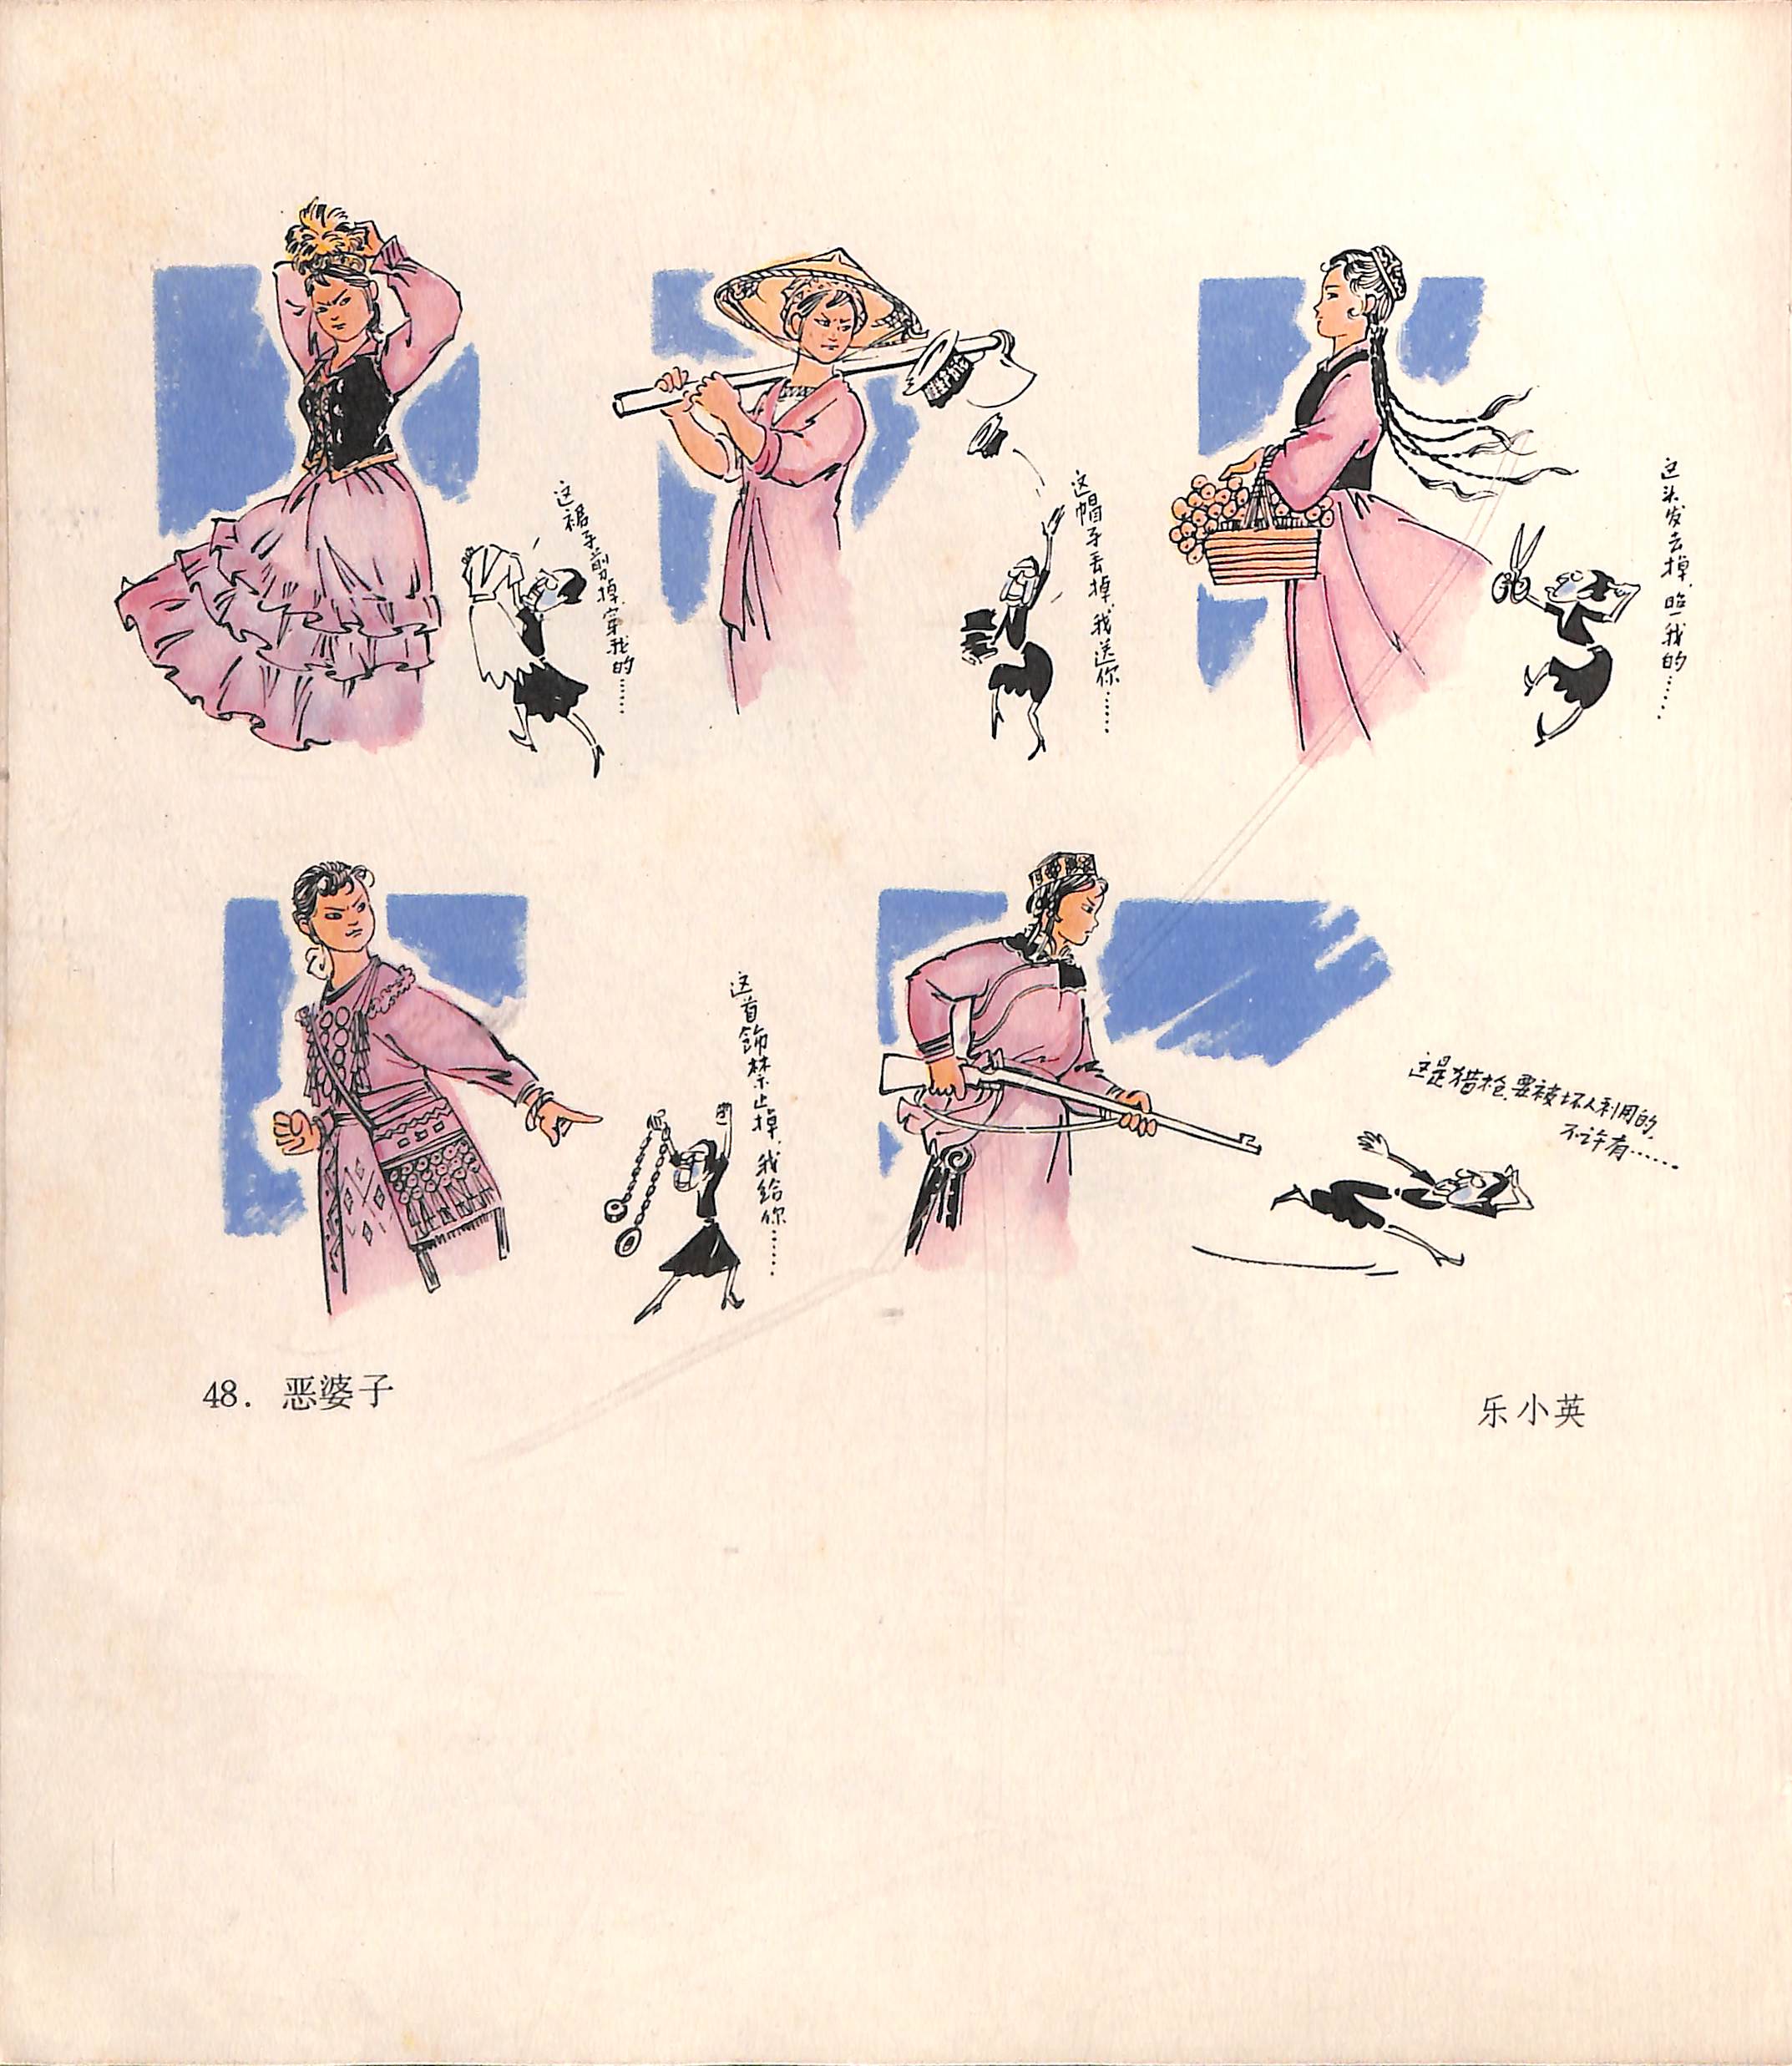 这裙子剪掉,穿我的……
这帽子丢掉,我送你……
这头发去掉,照我的……
这首饰禁止掉,我给你……
这是猎枪,要被坏人利用的,
不许有……
48. 恶婆子
乐小英